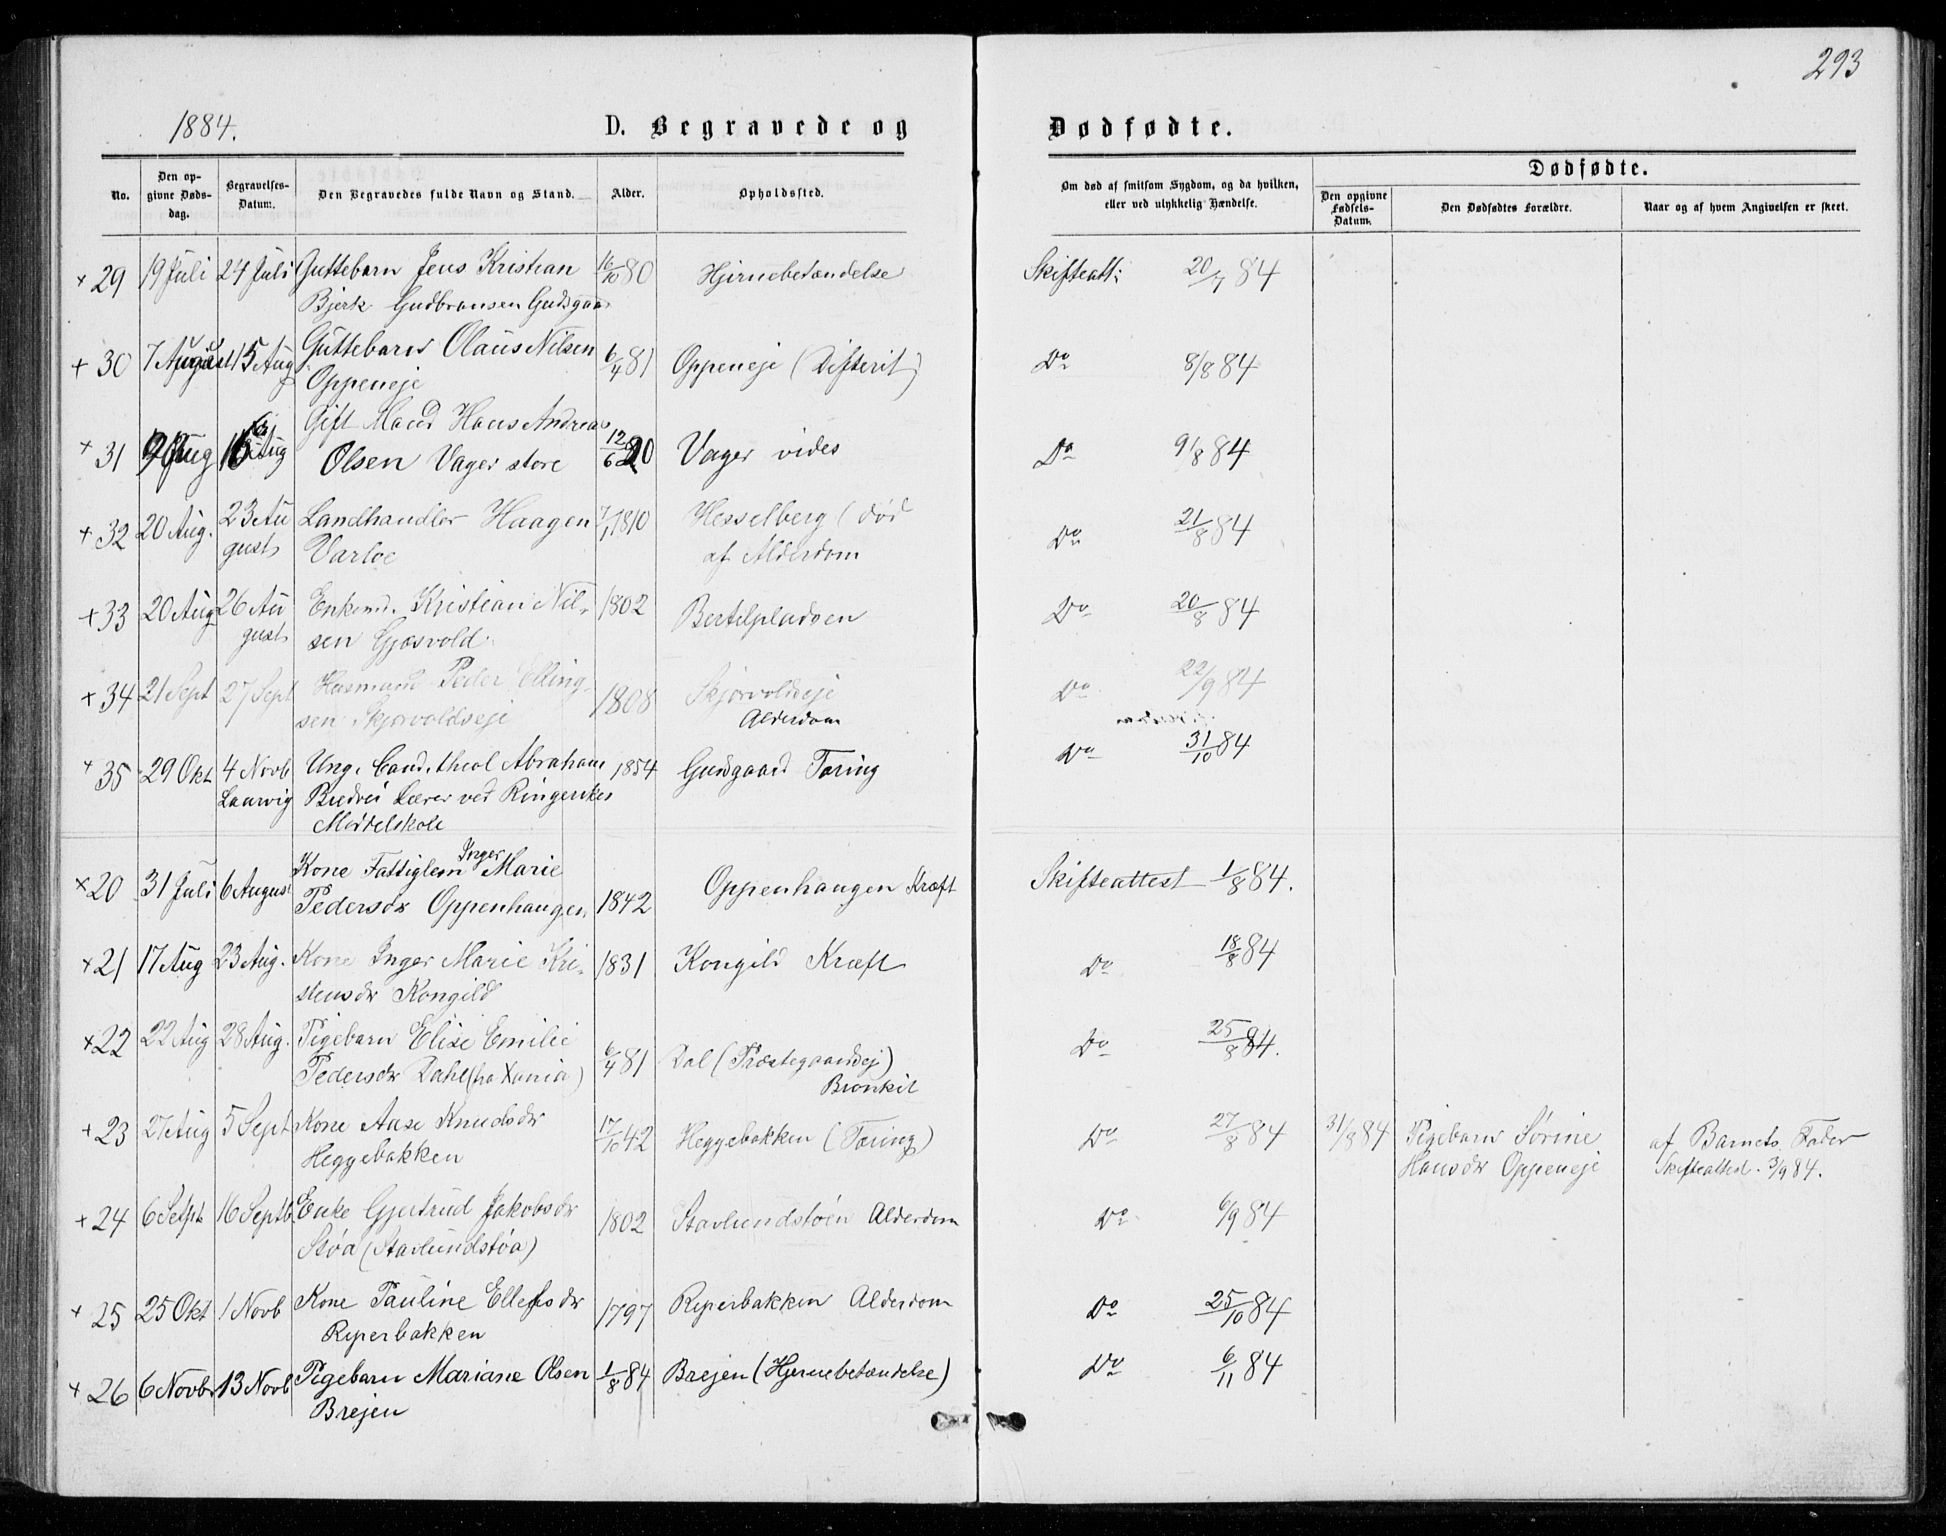 293
1884.
D. Begravede og Dødfødte.
Dødfødte.
No.
Den op-
givne Døds-
dag.
Begravelses-
Datum.
Den Begravedes fulde Navn og Stand.
Alder.
Opholdssted.
Om død af smitsom Sygdom, og da hvilken,
eller ved ulykkelig Hændelse.
Den opgivne
Fødsels-
Datum.
Den Dødfødtes Forældre.
Naar og af hvem Angivelsen er skeet.
+ 29 19 Juli 24 Juli Guttebarn Jens Kristian 16/10 80 Hjernebetændelse Skifteatt: 20/7 84
Bjerk Gudbransen Gudsgaar
+ 30 7 August 15 Aug Guttebarn Olaus Nilsen 6/4 81 Oppeneje (Difterit) Do 8/8 84
Oppeneje
+ 31 Aug 16 Aug Gift Mand Hans Andreas 12/6 20 Vager vides Do 9/8 84
Olsen Vager store
+ 32 20 Aug. 23 Au Landhandler Haagen 7/1 1810 Hesselberg (død Do 21/8 84
gust Varloe af Alderdom
+ 33 20 Aug 26 Au Enkemd. Kristian Nil- 1802 Bertilpladsen Do 20/8 84
gust sen Gjøsvold
+ 34 21 Sept 27 Sept Husmand Peder Elling- 1808 Skjørvoldseje Do 22/9 84
sen Skjørvoldseje Alderdom
+ 35 29 Okt 4 Novb Ung. Cand. theol Abraham 1854 Gusgaard Tæring Do 31/10 84
Laurvig Bredvei Lærer ved Ringerikes
Middelskole
+ 20 31 Juli 6 August Kone Fattiglem Inger Marie 1842 Oppenhaugen Kræft Skifteattest 1/8 84.
Pedersdr Oppenhaugen
+ 21 17 Aug 23 Aug. Kone Inger Marie Kri- 1831 Kongild Kræft Do 18/8 84
stensdr Kongild
+ 22 22 Aug 28 Aug. Pigebarn Elise Emilie 6/4 81 Dal (Præstegaardsej) Do 25/8 84.
Pedersdr Dahl (fra Xania) Bronkit
+ 23 27 Aug 5 Sept Kone Aase Knudsdr 17/10 42 Heggebakken (Tæring) Do 27/8 84 31/8 84 Pigebarn Sørine af Barnets Fader
Heggebakken Hansdr Oppeneje Skifteatted. 3/9 84.
+ 24 6 Setpt 16 Septb Enke Gjertrud Jakobsdr 1802 Stavlundstøen Alderdom Do 6/9 84
Støa (Stavlundstøa)
+ 25 25 Okt 1 Novb Kone Pauline Ellefsdr 1797 Reperbakken Alderdom Do 25/10 84
Reperbakken
+ 26 6 Novbr 13 Novb Pigebarn Mariane Olsen 1/8 84 Brejen (Hjernebetændelse) Do 6/11 84
Brejen